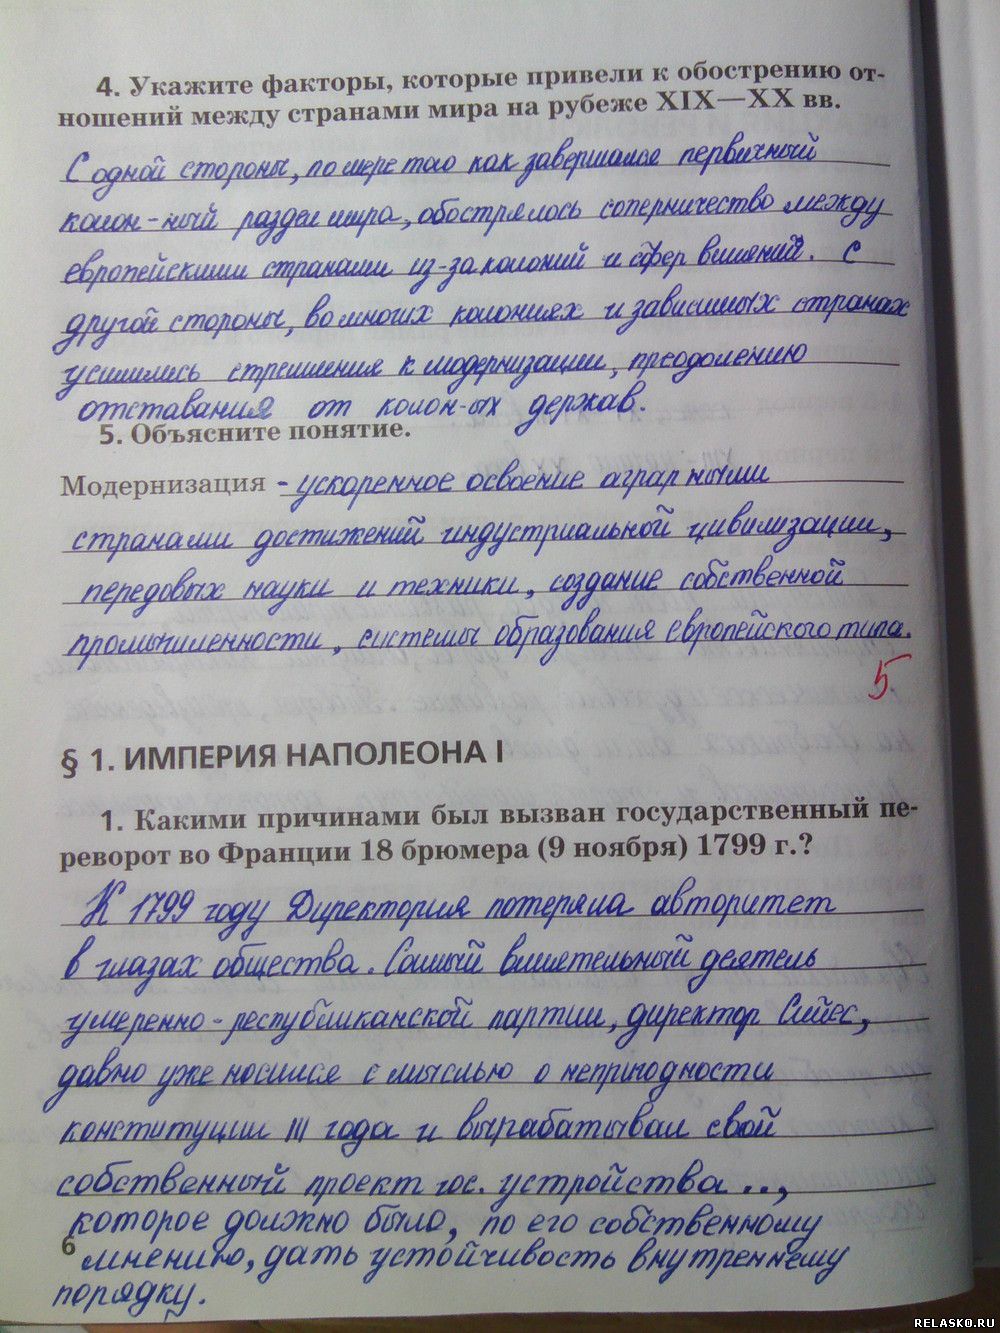 4. Укажите факторы, которые привели к обострению от-
ношений между странами мира на рубеже XIX—XX вв.
С одной стороны, по мере того как завершался первичный
колон-ный раздел мира, обострялось соперничество между
европейскими странами из-за колоний и сфер влияний. С
другой стороны, во многих колониях и зависимых странах
усилились стремления к модернизации, преодолению
отставания от колон-ых держав.
5. Объясните понятие.
Модернизация - ускоренное освоение аграрными
странами достижений индустриальной цивилизации,
передовых науки и техники, создание собственной
промышленности, системы образования европейского типа.
5
§ 1. ИМПЕРИЯ НАПОЛЕОНА I
1. Какими причинами был вызван государственный пе-
реворот во Франции 18 брюмера (9 ноября) 1799 г.?
К 1799 году Директория потеряла авторитет
в глазах общества. Самый влиятельный деятель
умеренно-республиканской партии, директор Сийес,
давно уже носился с мыслью о непригодности
конституции III года и вырабатывал свой
собственный проект гос. устройства..,
которое должно было, по его собственному
6 мнению, дать устойчивость внутреннему
порядку.
RELASKO.RU